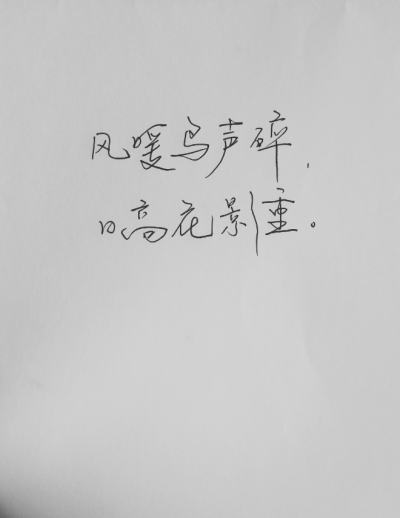 风暖鸟声碎,
日高花影重。